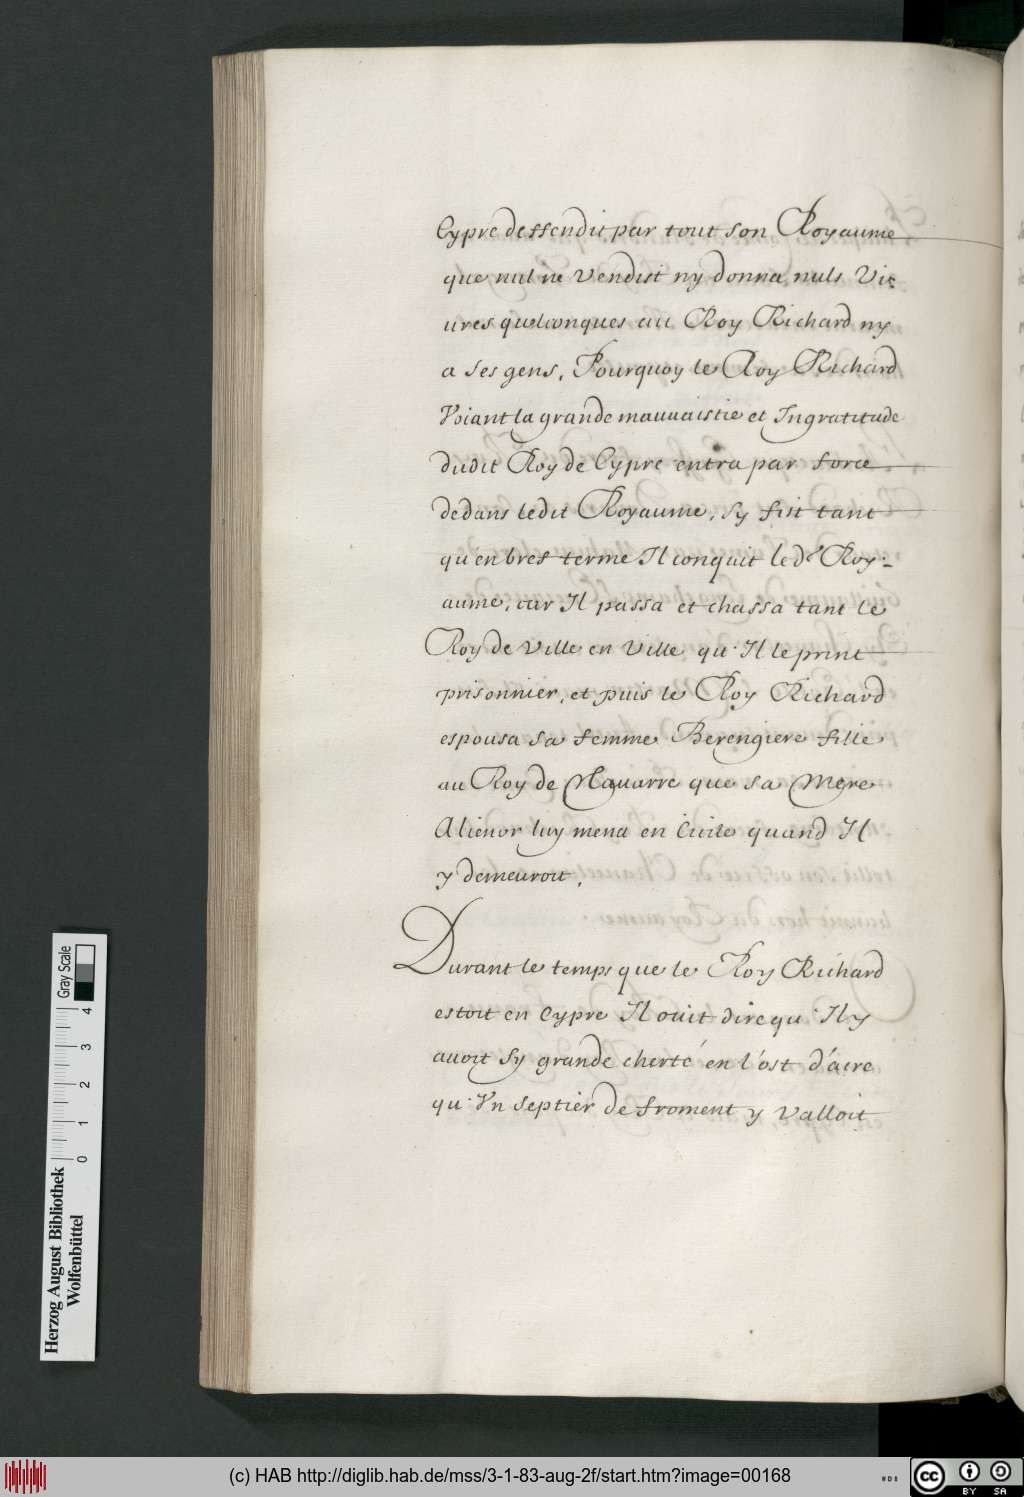 Cypre deffendit par tout son Royaume
que nul ne vendist ny donna nuls Vi-
ures quelconques au Roy Richard ny
a ses gens, Pourquoy le Roy Richard
Voiant la grande mauuaistie et Ingratitude
dudit Roy de Cypre entra par force
dedans ledit Royaume, sy fist tant
qu'en bref terme Il conquit le d.t Roy-
aume, car Il passa et chassa tant le
Roy de Ville en Ville qu'Il le print
prisonnier, et puis le Roy Richard
espousa sa femme Berengiere fille
au Roy de Nauarre que sa Mere
Alienor luy mena en Cicile quand Il
y demeuroit.
Durant le temps que le Roy Richard
estoit en Cypre Il ouit dire qu'Il y
auoit sy grande cherté en l'ost d'acre
qu'Vn septier de froment y valloit
Herzog August Bibliothek
Wolfenbüttel
0 1 2 3 4
Gray Scale
(c) HAB http://diglib.hab.de/mss/3-1-83-aug-2f/start.htm?image=00168
WDB
cc
BY SA